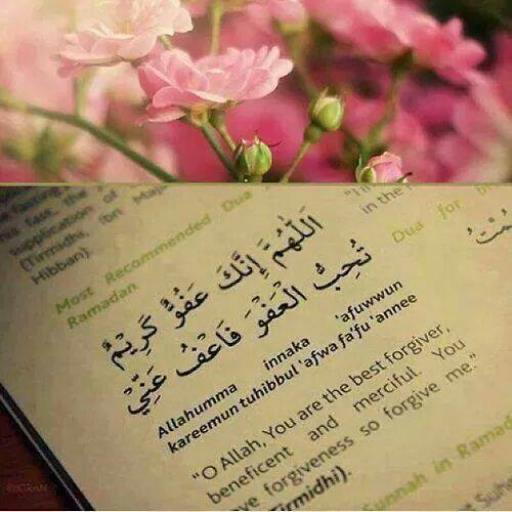 supplication of
(Tirmidhi, Ibn
Hibban).
Most Recommended Dua
Ramadan
اللَّهُمَّ إِنَّكَ عَفُوٌّ كَرِيْمٌ
تُحِبُّ الْعَفْوَ فَاعْفُ عَنِّيْ
Allahumma innaka 'afuwwun
kareemun tuhibbul 'afwa fa'fu 'annee
"O Allah, You are the best forgiver,
beneficent and merciful. You
ve forgiveness so forgive me."
irmidhi).
in the
Dua for
Sunnah in Ramad